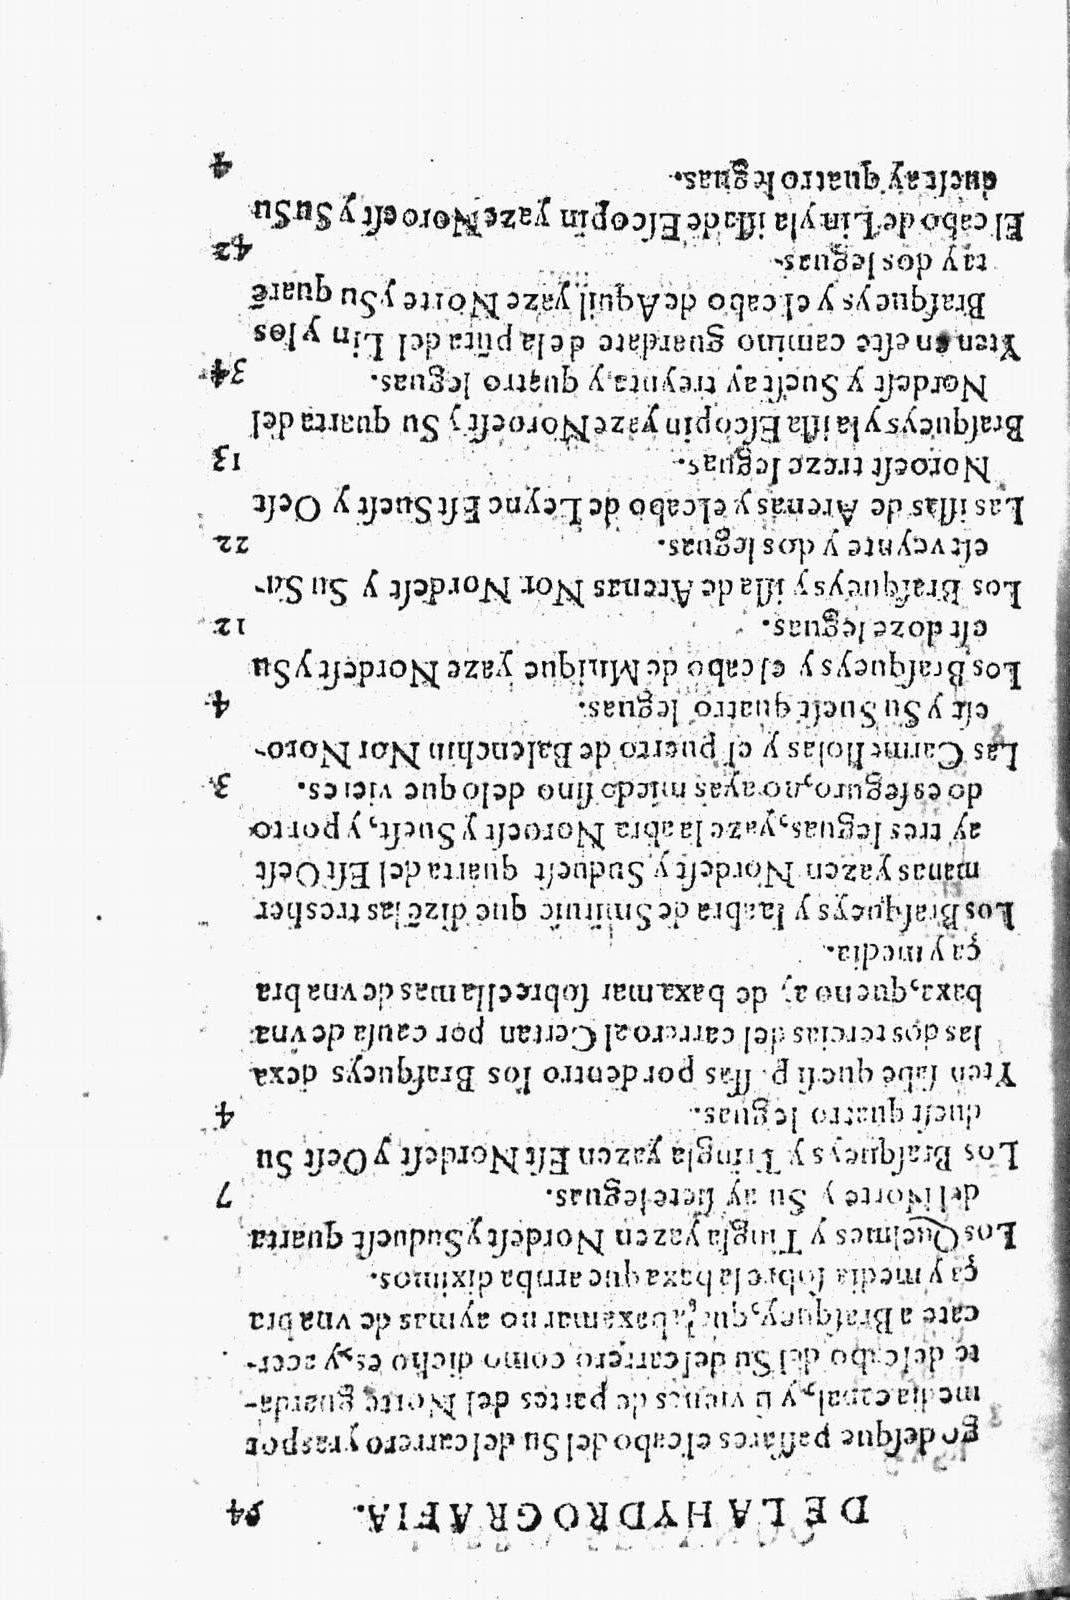 DE LA HYDROGRAFIA. 94
go deſque paſſares elcabo del Su del carrero yras por
media canal, y ſi vienes de partes del Norte guarda-
te delcabo del Su del carrero como dicho es, y acer-
cate a Braſquey, que baxamar no ay mas de vna bra
ça y media ſobre la baxa que arriba diximos.
Los Quelmes y Tingla yazen Nordeſt y Sudueſt quarta
del Norte y Su ay ſiete leguas. 7
Los Braſqueys y Tringla yazen Eſt Nordeſt y Oeſt Su
dueſt quatro leguas. 4
Yten ſabe que ſi p ſſas por dentro los Braſqueys dexa
las dos tercias del carrero al Certan por cauſa de vna
baxa, que no ay de baxa mar ſobre ella mas de vna bra
ça y media.
Los Braſqueys y la abra de que dizẽ las tres her
manas yazen Nordeſt y Sudueſt quarta del Eſt Oeſt
ay tres leguas, yaze la abra Noroeſt y Sueſt, y por to
do es ſeguro, no ayas miedo ſino de lo que vieres. 3
Las Carmeſlolas y el puerto de Balenchin Nor Noro-
eſt y Su Sueſt quatro leguas. 4
Los Braſqueys y el cabo de Muique yaze Nordeſt y Su
eſt doze leguas. 12
Los Braſqueys y iſla de Arenas Nor Nordeſt y Su Su-
eſt veynte y dos leguas. 22
Las iſlas de Arenas y el cabo de Leyne Eſt Sueſt y Oeſt
Noroeſt treze leguas. 13
Braſqueys y la iſla Eſcopin yaze Noroeſt y Su quarta del
Nordeſt y Sueſt ay treynta y quatro leguas. 34
Yten en eſte camino guardate de la pũta del Lin y los
Braſqueys y el cabo de Aquil yaze Norte y Su quarẽ
ta y dos leguas. 42
El cabo de Lin y la iſla de Eſcopin yaze Noroeſt y Su Su
dueſt ay quatro leguas. 4